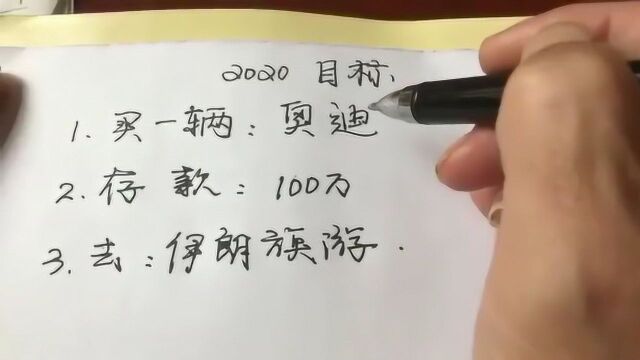 2020 目标
1. 买一辆：奥迪
2. 存款：100万
3. 去：伊朗旅游.